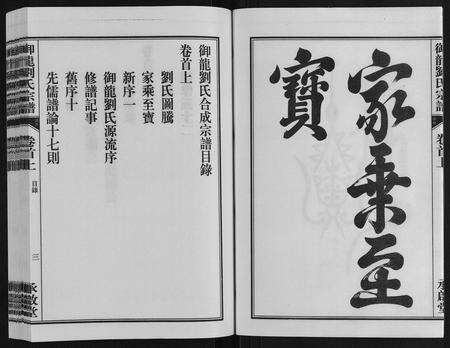 家乘至
寶
御龍劉氏宗譜
卷首上
御龍劉氏合成宗譜目錄
卷首上
劉氏圖騰
家乘至寶
新序一
御龍劉氏源流序
修譜記事
舊序十
先儒譜論十七則
御龍劉氏宗譜
卷首上
目錄
三